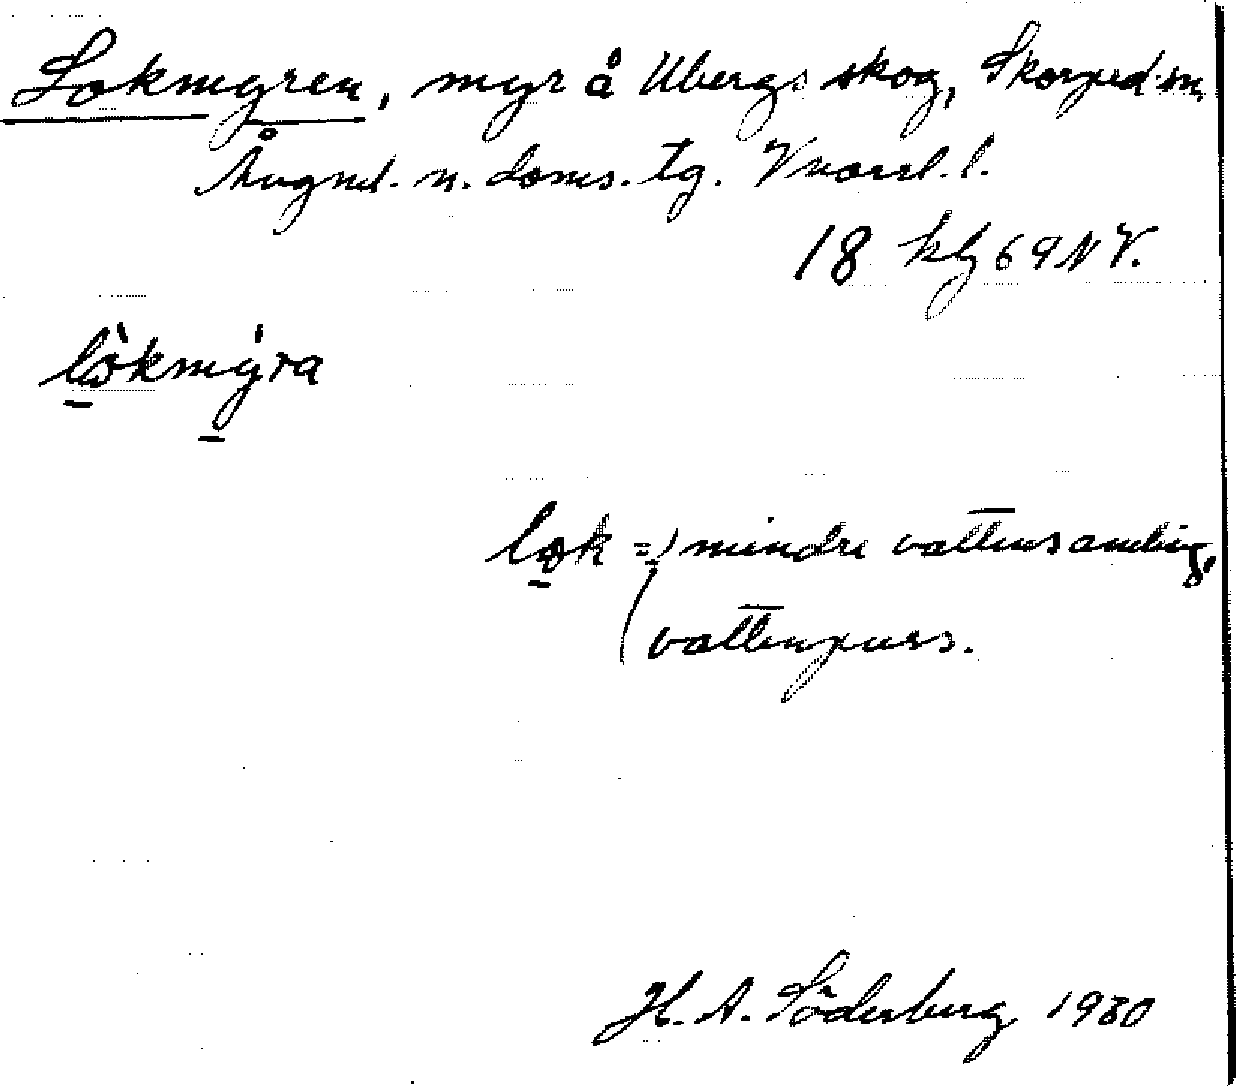 Lokmyren, myr å Ubergs skog, Skorped sn.
Ångml. n. doms. tg. Vnorrl. l.
18 69 NV.
lo̱kmy̱ra
lo̱k = mindre vattensamling,
vattenpuss.
H. A. Söderberg 1930